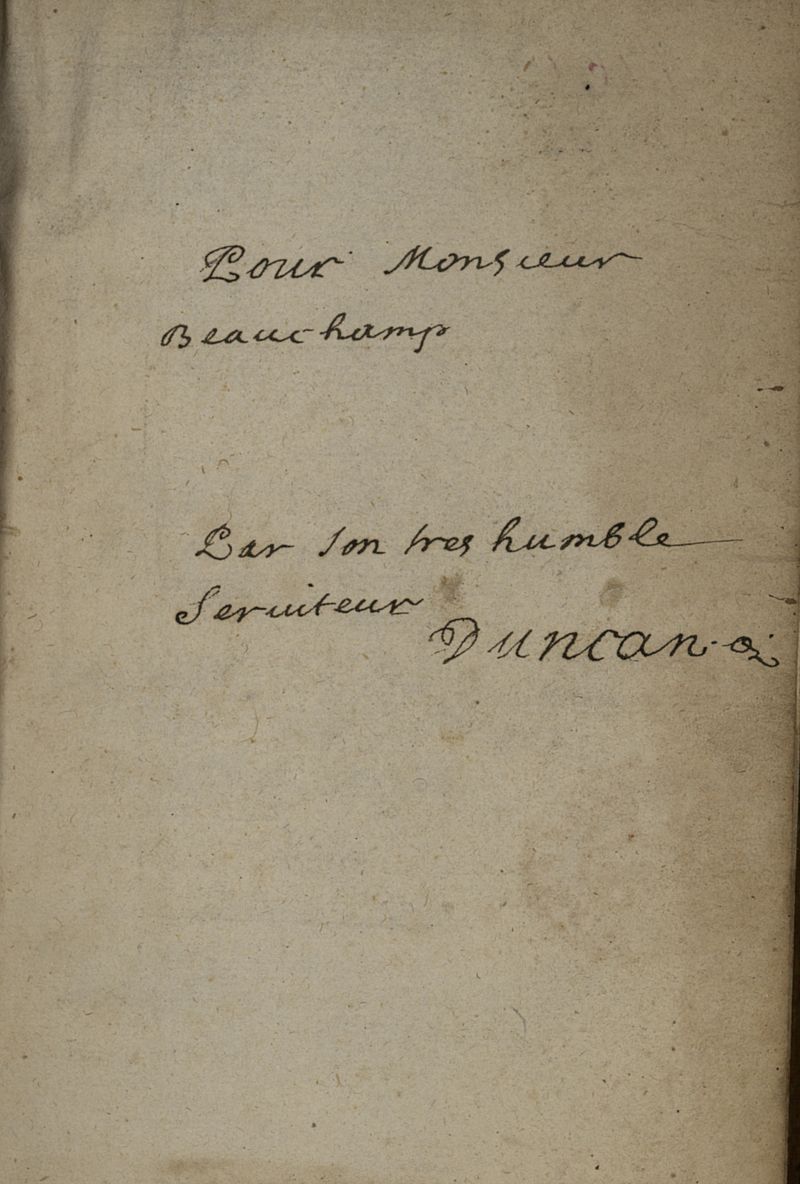 Pour Monsieur
Beauchamp
Par son tres humble
Seruiteur
Duncan